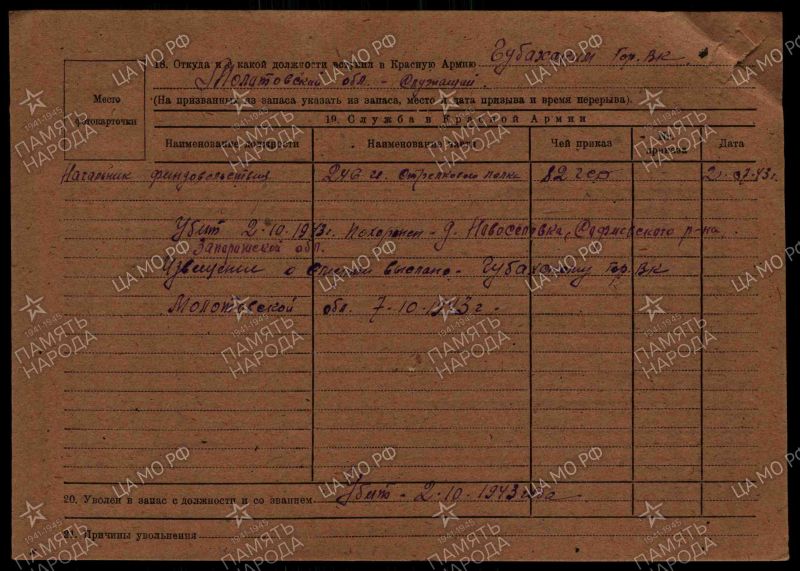 18. Откуда и с какой должности вступил в Красную Армию Губахским Гор. ВК.
Молотовской обл. - Служащий.
(На призванных из запаса указать из запаса, место и дата призыва и время перерыва).
Место
фотокарточки
19. Служба в Красной Армии
Наименование должности Наименование части Чей приказ № приказа Дата
Начальник финдовольствия 246 гв. Стрелкового полка 82 гсд 43 г.
Убит 2.10.1943 г. Похоронен - д. Новоселовка, р-на
Запорожской обл.
Извещение о выслано - Губахскому Гор. ВК
Молотовской обл. 7.10.1943 г.
20. Уволен в запас с должности и со званием Убит - 2.10.1943 года
21. Причины увольнения
ЦА МО РФ
1941-1945
ПАМЯТЬ
НАРОДА